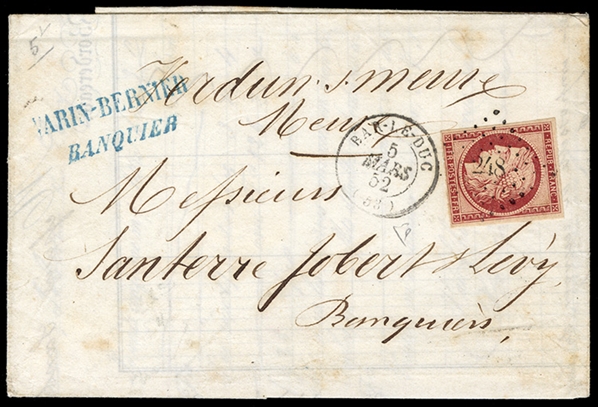 5
VARIN-BERNIER
BANQUIER
Verdun s. meuse
Meuse
BAR-LE-DUC
5
MARS
52
(53)
REPUB. FRANC.
248
Messieurs
Santerre Jobert & Levy
Banquiers
Bordereau